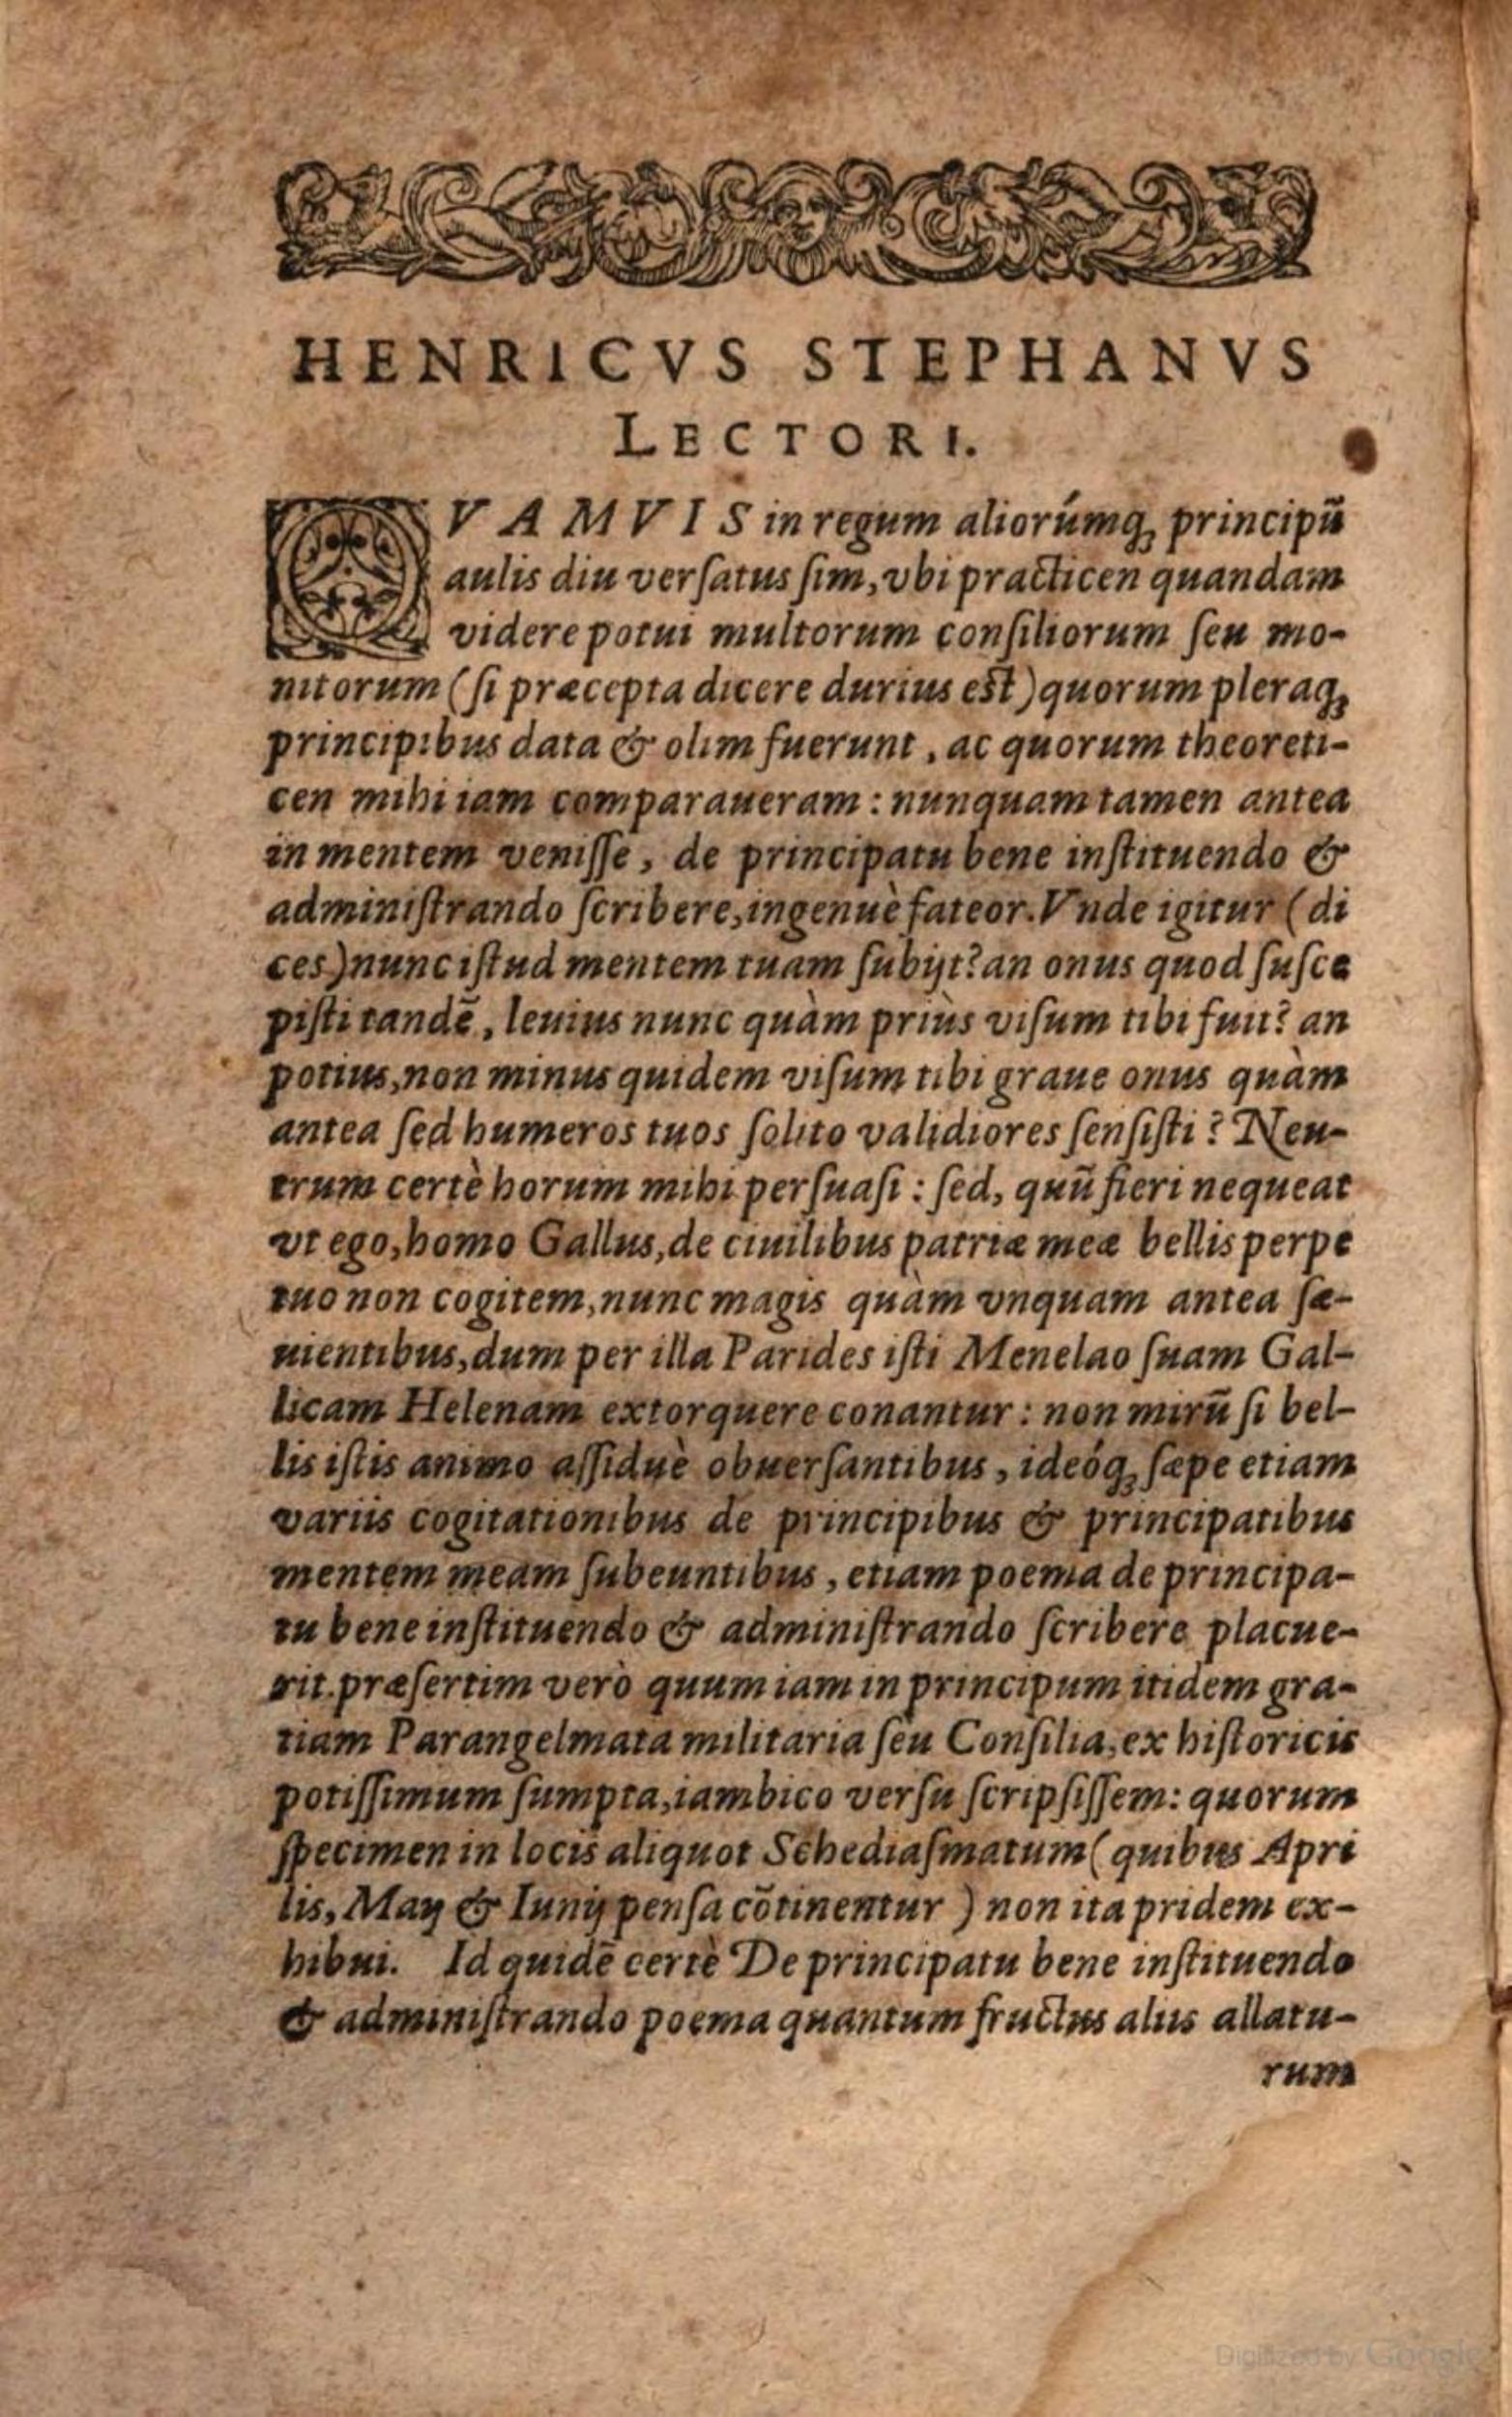 HENRICVS STEPHANVS
LECTORI.
QVAMVIS in regum aliorúmq; principũ
aulis diu verſatus ſim, vbi practicen quandam
videre potui multorum conſiliorum ſeu mo-
nitorum (ſi præcepta dicere durius eſt) quorum pleraq;
principibus data & olim fuerunt, ac quorum theoreti-
cen mihi iam comparaueram: nunquam tamen antea
in mentem veniſſe, de principatu bene inſtituendo &
adminiſtrando ſcribere, ingenuè fateor. Vnde igitur (di
ces) nunc iſtud mentem tuam ſubijt? an onus quod ſuſce
piſti tandẽ, leuius nunc quàm priùs viſum tibi fuit? an
potius, non minus quidem viſum tibi graue onus quàm
antea ſed humeros tuos ſolito validiores ſenſiſti? Neu-
trum certè horum mihi perſuaſi: ſed, quũ fieri nequeat
vt ego, homo Gallus, de ciuilibus patriæ meæ bellis perpe
tuo non cogitem, nunc magis quàm vnquam antea ſæ-
uientibus, dum per illa Parides iſti Menelao ſuam Gal-
licam Helenam extorquere conantur: non mirũ ſi bel-
lis iſtis animo aſſiduè obuerſantibus, ideóq; ſæpe etiam
variis cogitationibus de principibus & principatibus
mentem meam ſubeuntibus, etiam poema de principa-
tu bene inſtituendo & adminiſtrando ſcribere placue-
rit. præſertim verò quum iam in principum itidem gra-
tiam Parangelmata militaria ſeu Conſilia, ex hiſtoricis
potiſſimum ſumpta, iambico verſu ſcripſiſſem: quorum
ſpecimen in locis aliquot Schediaſmatum (quibus Apri
lis, Maij & Iunij penſa cõtinentur) non ita pridem ex-
hibui. Id quidẽ certè De principatu bene inſtituendo
& adminiſtrando poema quantum fructus aliis allatu-
rum
Digitized by Google